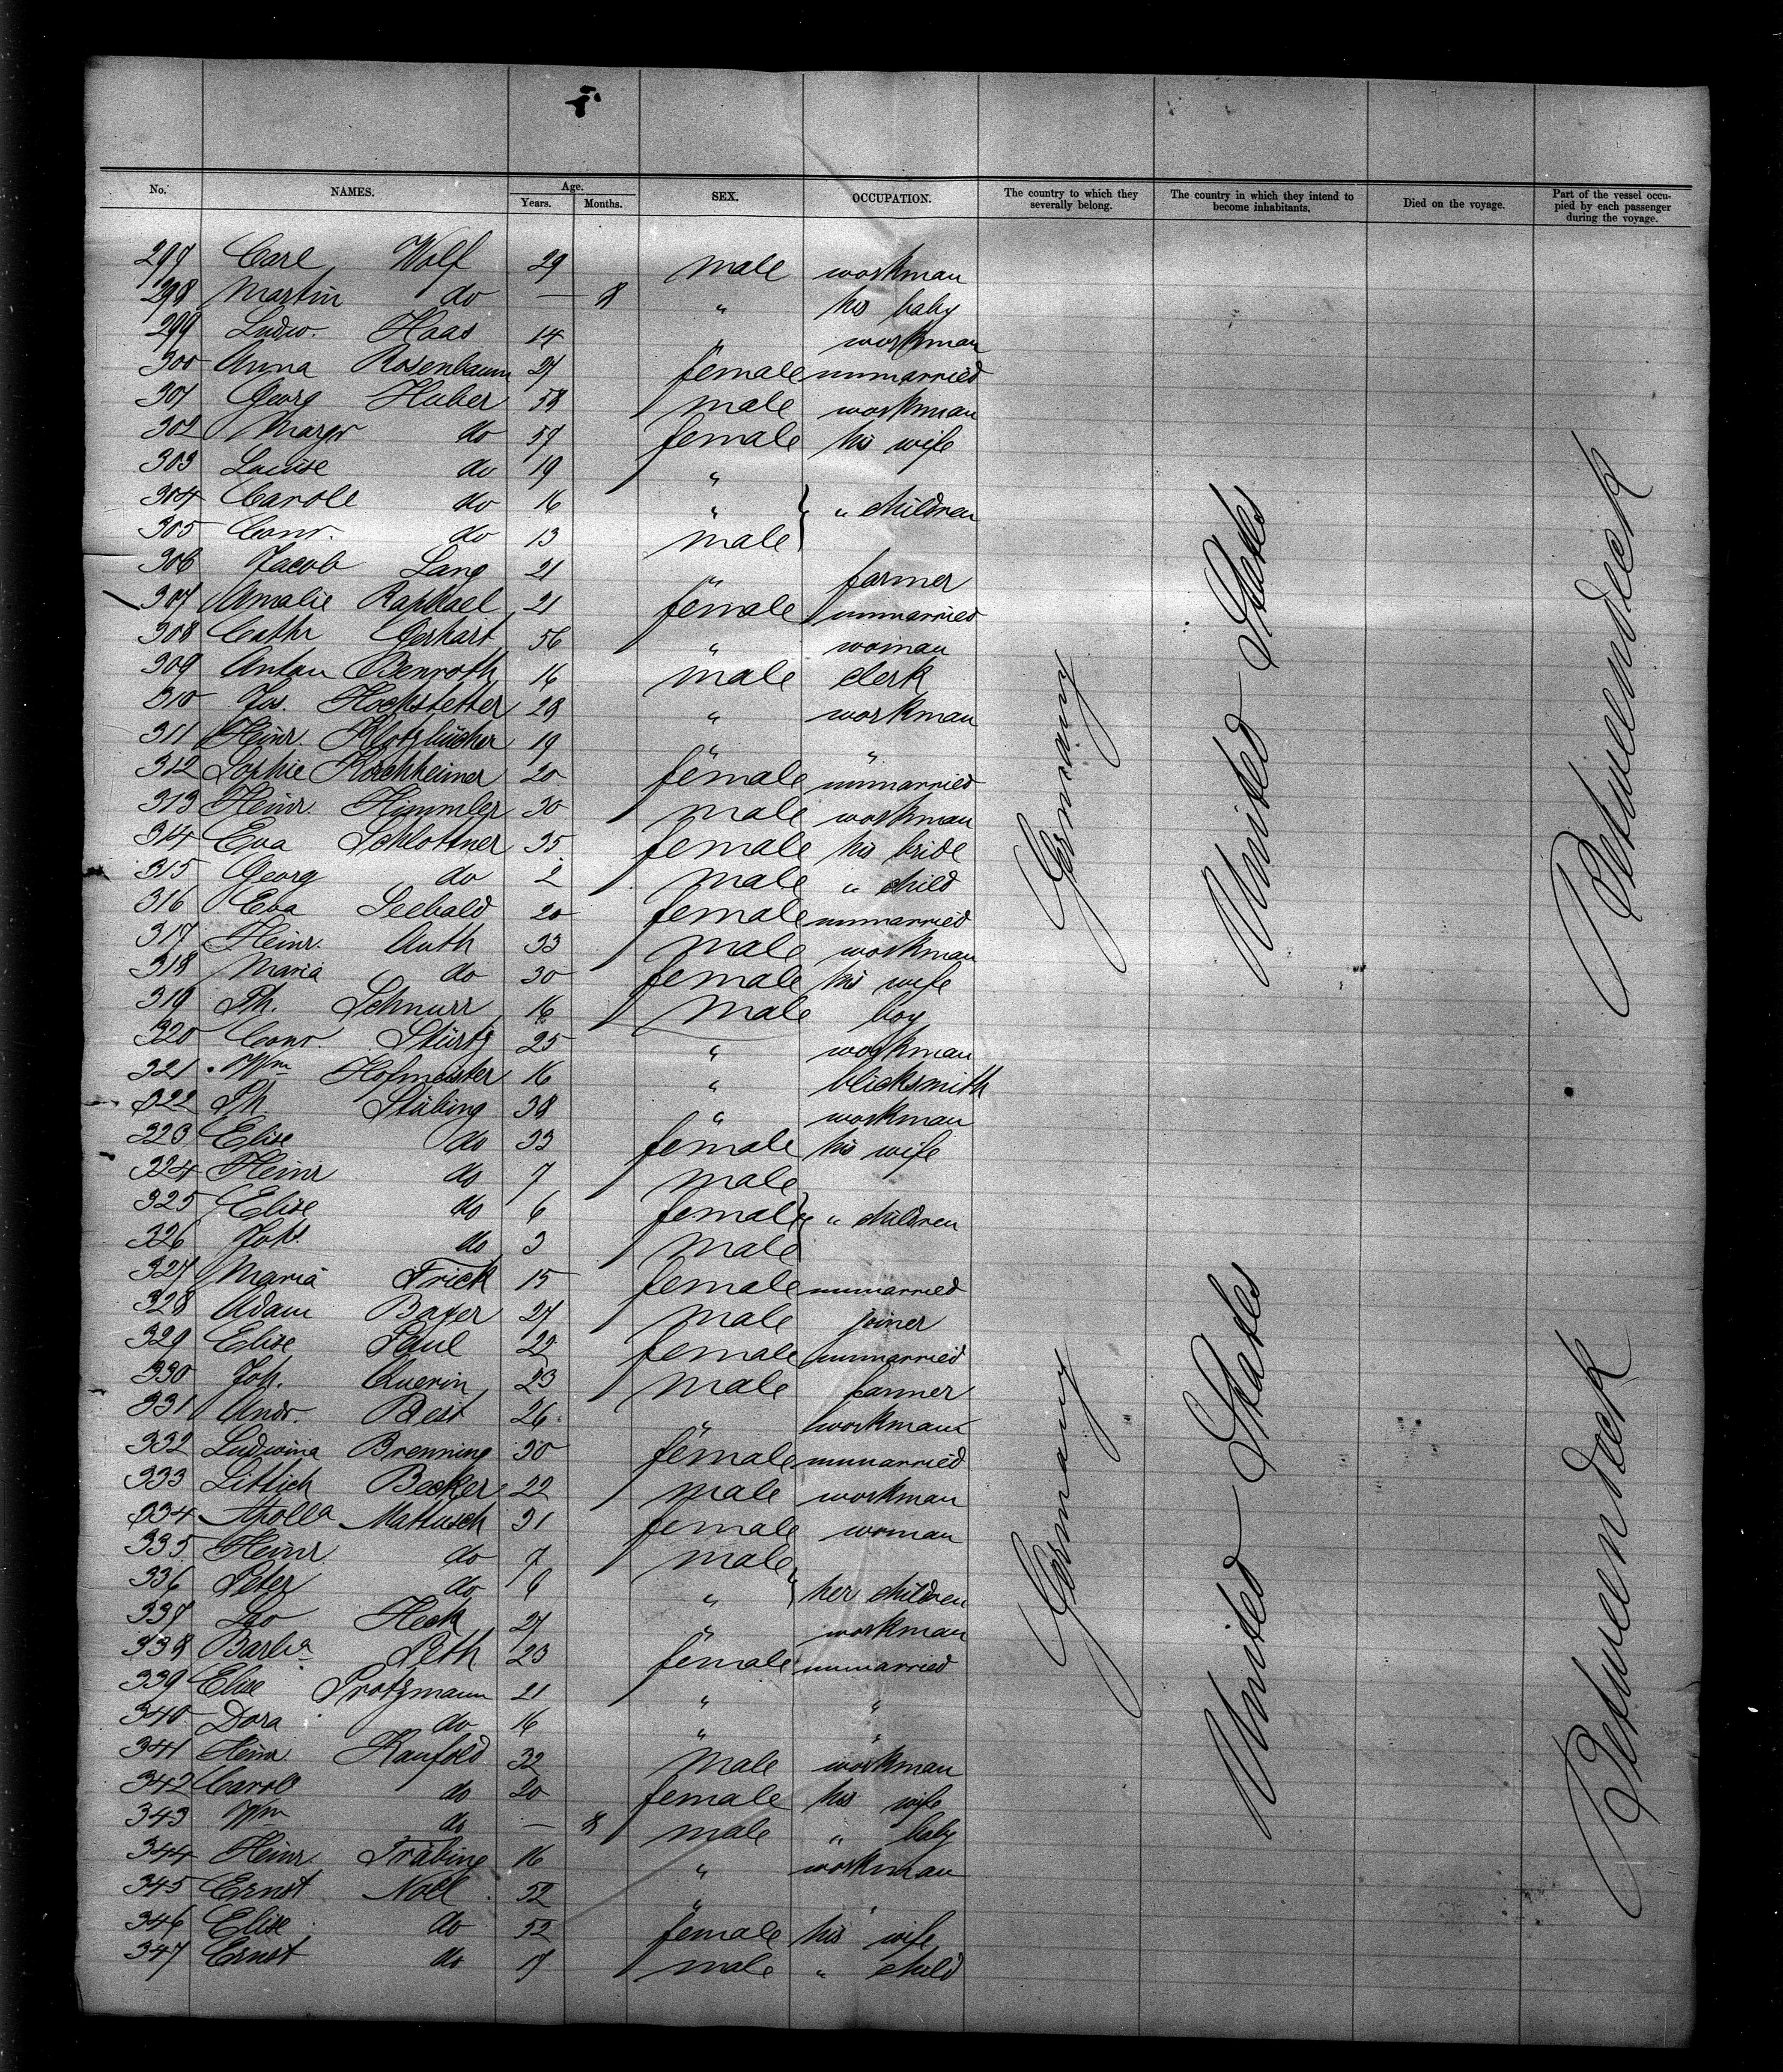 No. NAMES. Age. Years. Months. SEX. OCCUPATION. The country to which they severally belong. The country in which they intend to become inhabitants. Died on the voyage. Part of the vessel occupied by each passenger during the voyage.
297 Carl Wolf 29 male workman
298 Martin do — 8 " his baby
299 Ludw. Haas 14 " workman
300 Anna Rosenbaum 27 female unmarried
301 Georg Huber 58 male workman
302 Margr do 57 female his wife
303 Louise do 19 "
304 Carole do 16 " " children
305 Conr. do 13 male
306 Jacob Lang 21 " farmer
307 Amalie Raphael 21 female unmarried
308 Cathr Gerhart 56 " woman
309 Anton Benroth 16 male clerk
310 Jos. Hochstetter 28 " workman
311 Heinr. Klotzbücher 19 " "
312 Sophie Kirchheimer 20 female unmarried
313 Heinr. Himmler 30 male workman
314 Eva Schlottner 35 female his bride
315 Georg do 2 male " child
316 Eva Seebald 20 female unmarried
317 Heinr. Auth 33 male workman
318 Maria do 30 female his wife
319 Ph. Schnurr 16 male boy
320 Conr. Stürtz 25 " workman
321 Wm Hofmeister 16 " blicksmith
322 Ph. Stübing 38 " workman
323 Elise do 33 female his wife
324 Heinr do 7 male
325 Elise do 6 female " children
326 Johs. do 3 male
327 Maria Frick 15 female unmarried
328 Adam Bayer 27 male joiner
329 Elise Paul 22 female unmarried
330 Joh. Querin 23 male farmer
331 Andr. Best 26 " workman
332 Ludwina Brenning 30 female unmarried
333 Littich Becker 22 male workman
334 Apolla Mattusch 31 female woman
335 Heinr. do 7 male
336 Peter do 6 " her children
337 Leo Heck 27 " workman
338 Barba Peth 23 female unmarried
339 Elise Protzmann 21 " "
340 Dora do 16 " "
341 Heinr Kaufold 32 male workman
342 Carole do 20 female his wife
343 Wm do — 8 male " baby
344 Heinr. Träbing 16 " workman
345 Ernst Noll 52 " "
346 Elise do 52 female his wife
347 Ernst do 7 male " child
Germany United States Betweendeck
Germany United States Betweendeck